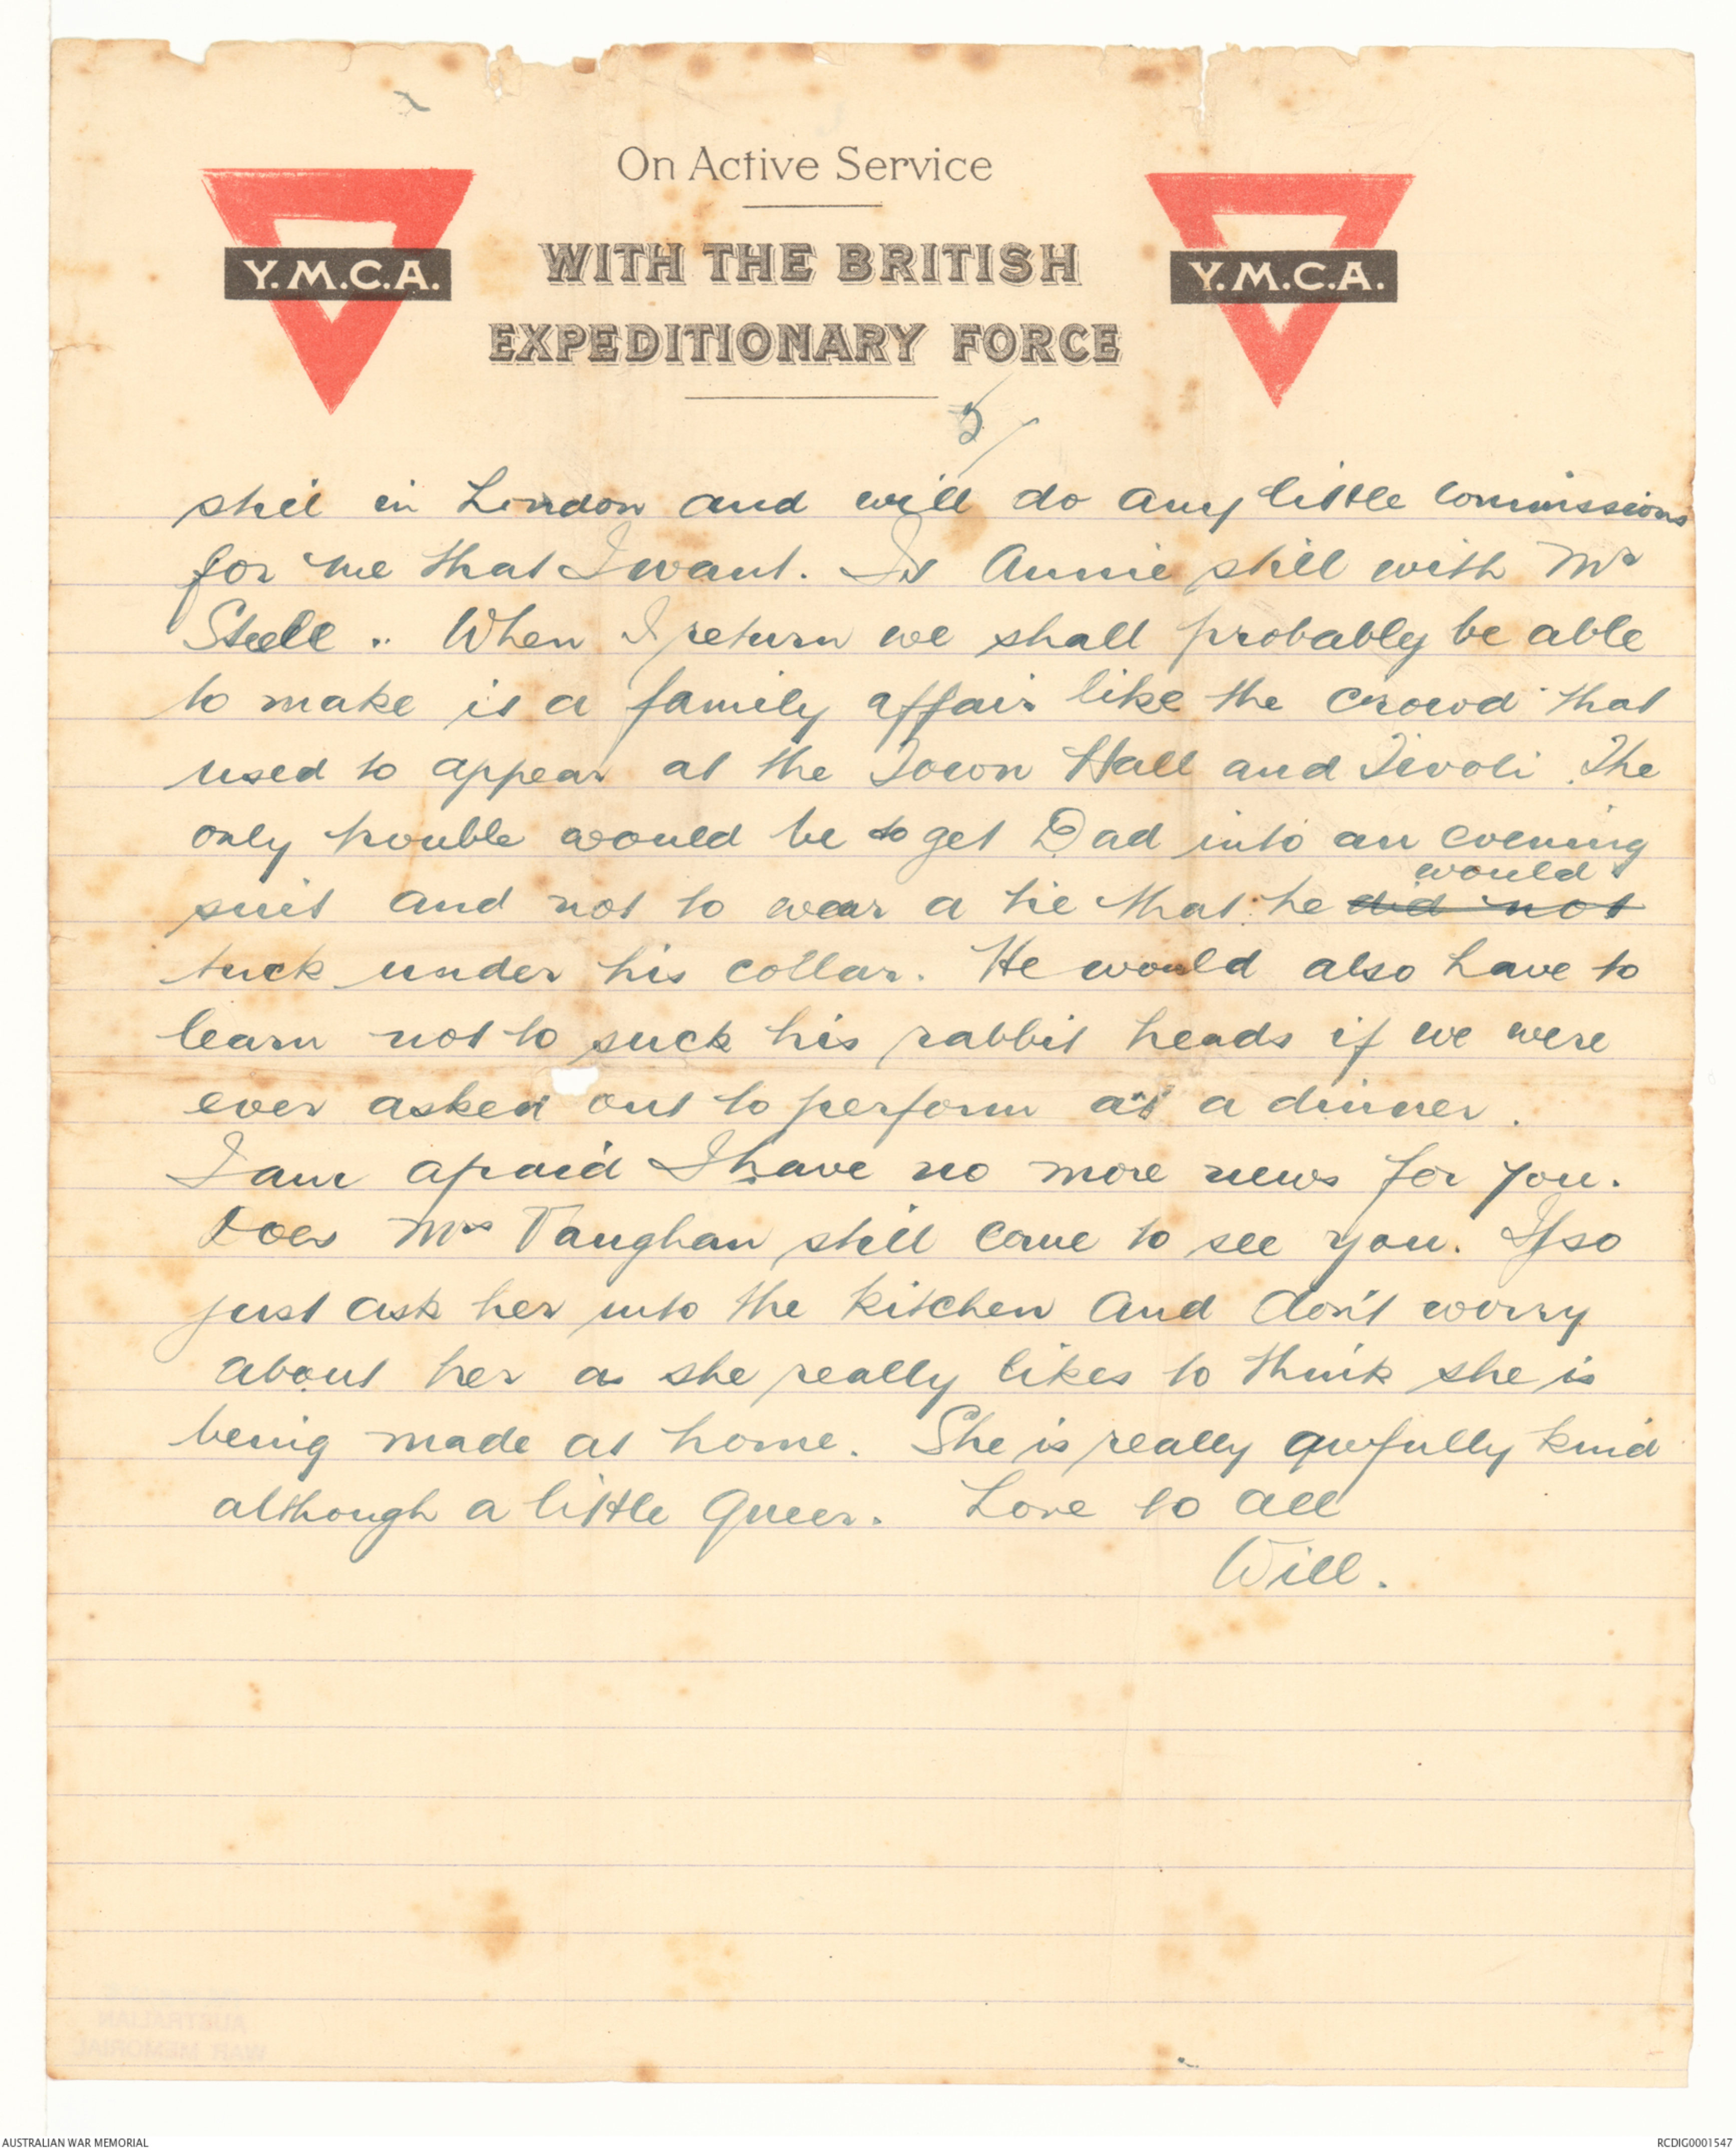 On Active Service
WITH THE BRITISH
EXPEDITIONARY FORCE
Y.M.C.A.
Y.M.C.A.
5/
still in London and will do any little commissions
for me that I want. Is Annie still with Mr
Steele .. When I return we shall probably be able
to make is a family affair like the crowd that
used to appear at the Town Hall and Tivoli. The
only trouble would be to get Dad into an evening
would
suit and not to wear a tie that he did not
tuck under his collar. He would also have to
learn not to suck his rabbit heads if we were
ever asked out to perform at a dinner.
I am afraid I have no more news for you.
Does Mrs Vaughan still come to see you. If so
just ask her into the kitchen and don't worry
about her as she really likes to think she is
being made at home. She is really awfully kind
although a little queer. Love to all
Will.
AUSTRALIAN
WAR MEMORIAL
AUSTRALIAN WAR MEMORIAL
RCDIG0001547